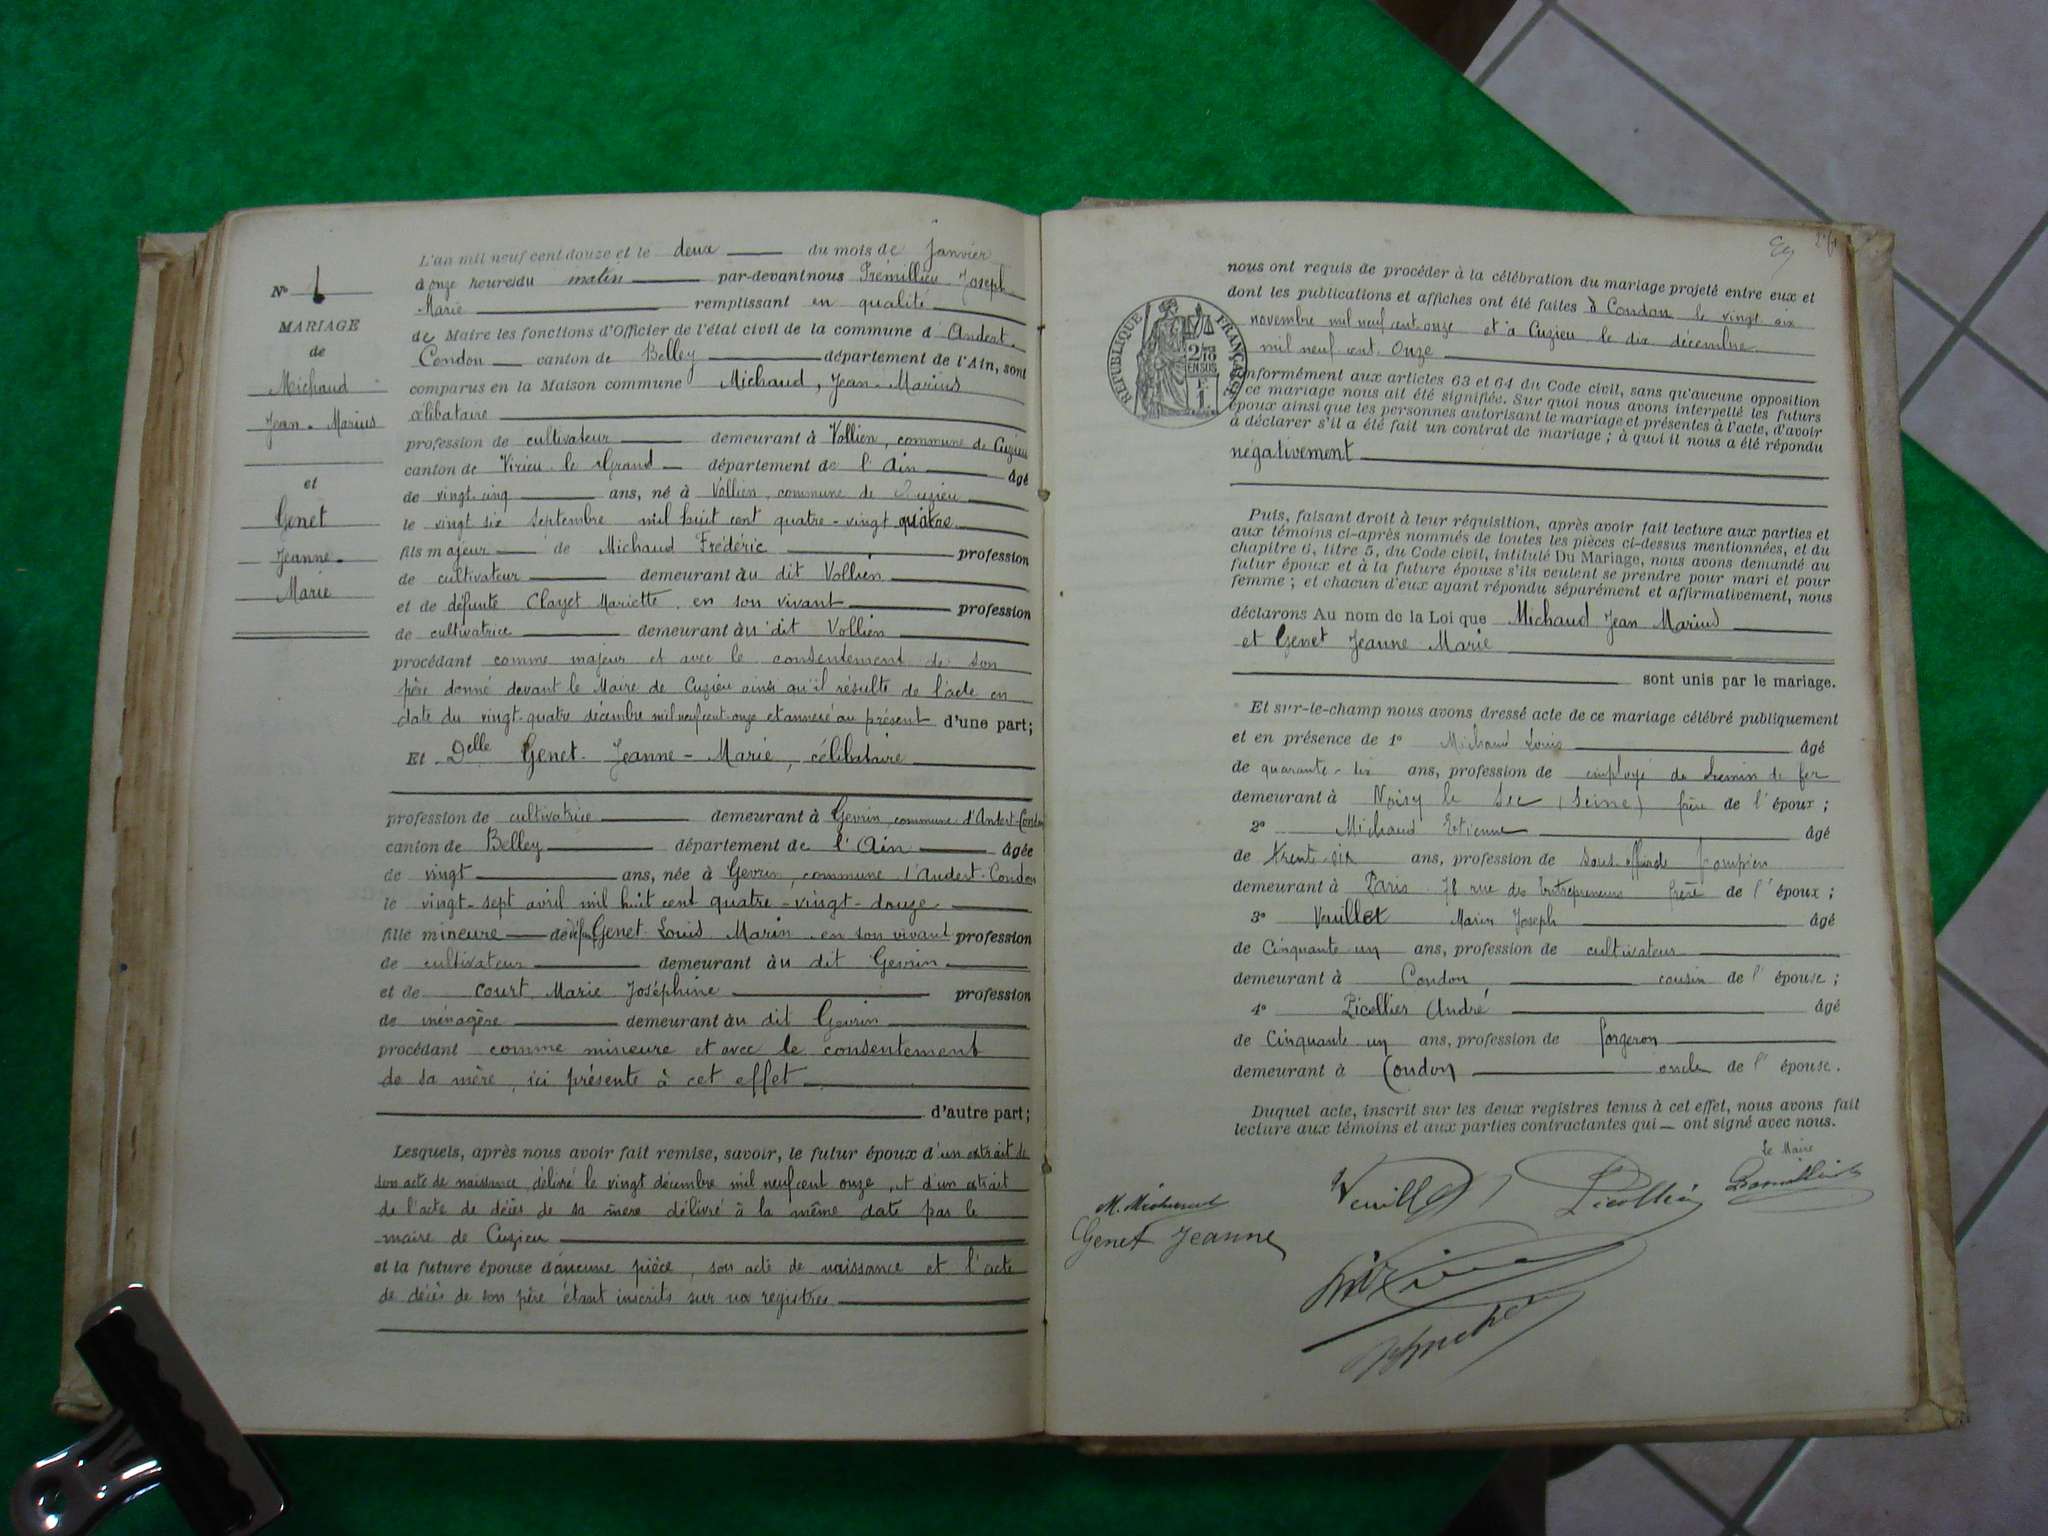 N° 1
MARIAGE
de
Michaud
Jean-Marius
et
Genet
Jeanne-
Marie
L'an mil neuf cent douze et le deux du mois de Janvier
à onze heures du matin par-devant nous Trémillieu Joseph
Marie remplissant en qualité
de Maire les fonctions d'Officier de l'état civil de la commune d'Andert-
Condon canton de Belley département de l'Ain, sont
comparus en la Maison commune Michaud, Jean-Marius
célibataire
profession de cultivateur demeurant à Vollien, commune de Cuzieu
canton de Virieu-le-Grand département de l'Ain âgé
de vingt-cinq ans, né à Vollien, commune de Cuzieu
le vingt six septembre mil huit cent quatre-vingt quatre
fils majeur de Michaud Frédéric profession
de cultivateur demeurant au dit Vollien
et de défunte Clayet Mariette en son vivant profession
de cultivatrice demeurant au dit Vollien
procédant comme majeur et avec le consentement de son
père donné devant le Maire de Cuzieu ainsi qu'il résulte de l'acte en
date du vingt-quatre décembre mil neuf cent onze et annexé au présent d'une part;
Et Delle Genet Jeanne-Marie, célibataire
profession de cultivatrice demeurant à Gevrin, commune d'Andert-Condon
canton de Belley département de l'Ain âgée
de vingt ans, née à Gevrin, commune d'Andert-Condon
le vingt-sept avril mil huit cent quatre-vingt-douze
fille mineure de Genet Louis Marin en son vivant profession
de cultivateur demeurant au dit Gevrin
et de Court Marie Joséphine profession
de ménagère demeurant au dit Gevrin
procédant comme mineure et avec le consentement
de sa mère, ici présente à cet effet
d'autre part;
Lesquels, après nous avoir fait remise, savoir, le futur époux d'un extrait de
son acte de naissance, délivré le vingt décembre mil neuf cent onze, et d'un extrait
de l'acte de décès de sa mère délivré à la même date par le
maire de Cuzieu
et la future épouse d'aucune pièce, son acte de naissance et l'acte
de décès de son père étant inscrits sur nos registres
nous ont requis de procéder à la célébration du mariage projeté entre eux et
dont les publications et affiches ont été faites à Condon le vingt six
novembre mil neuf cent onze et à Cuzieu le dix décembre
mil neuf cent onze
RÉPUBLIQUE FRANÇAISE
2/10
EN SUS
1F
conformément aux articles 63 et 64 du Code civil, sans qu'aucune opposition
à ce mariage nous ait été signifiée. Sur quoi nous avons interpellé les futurs
époux ainsi que les personnes autorisant le mariage et présentes à l'acte, d'avoir
à déclarer s'il a été fait un contrat de mariage ; à quoi il nous a été répondu
négativement
Puis, faisant droit à leur réquisition, après avoir fait lecture aux parties et
aux témoins ci-après nommés de toutes les pièces ci-dessus mentionnées, et du
chapitre 6, titre 5, du Code civil, intitulé Du Mariage, nous avons demandé au
futur époux et à la future épouse s'ils veulent se prendre pour mari et pour
femme ; et chacun d'eux ayant répondu séparément et affirmativement, nous
déclarons Au nom de la Loi que Michaud Jean Marius
et Genet Jeanne Marie
sont unis par le mariage.
Et sur-le-champ nous avons dressé acte de ce mariage célébré publiquement
et en présence de 1° Michaud Louis âgé
de quarante-six ans, profession de employé de chemin de fer
demeurant à Noisy le Sec (Seine) frère de l'époux ;
2° Michaud Etienne âgé
de trente-six ans, profession de sous-officier pompier
demeurant à Paris 78 rue des Entrepreneurs frère de l'époux ;
3° Veuillet Marin Joseph âgé
de Cinquante un ans, profession de cultivateur
demeurant à Condon cousin de l'épouse ;
4° Picollier André âgé
de Cinquante un ans, profession de forgeron
demeurant à Condon oncle de l'épouse.
Duquel acte, inscrit sur les deux registres tenus à cet effet, nous avons fait
lecture aux témoins et aux parties contractantes qui ont signé avec nous.
le Maire
M. Michaud
Genet Jeanne
Veuillet
Picollier
Tremillieu